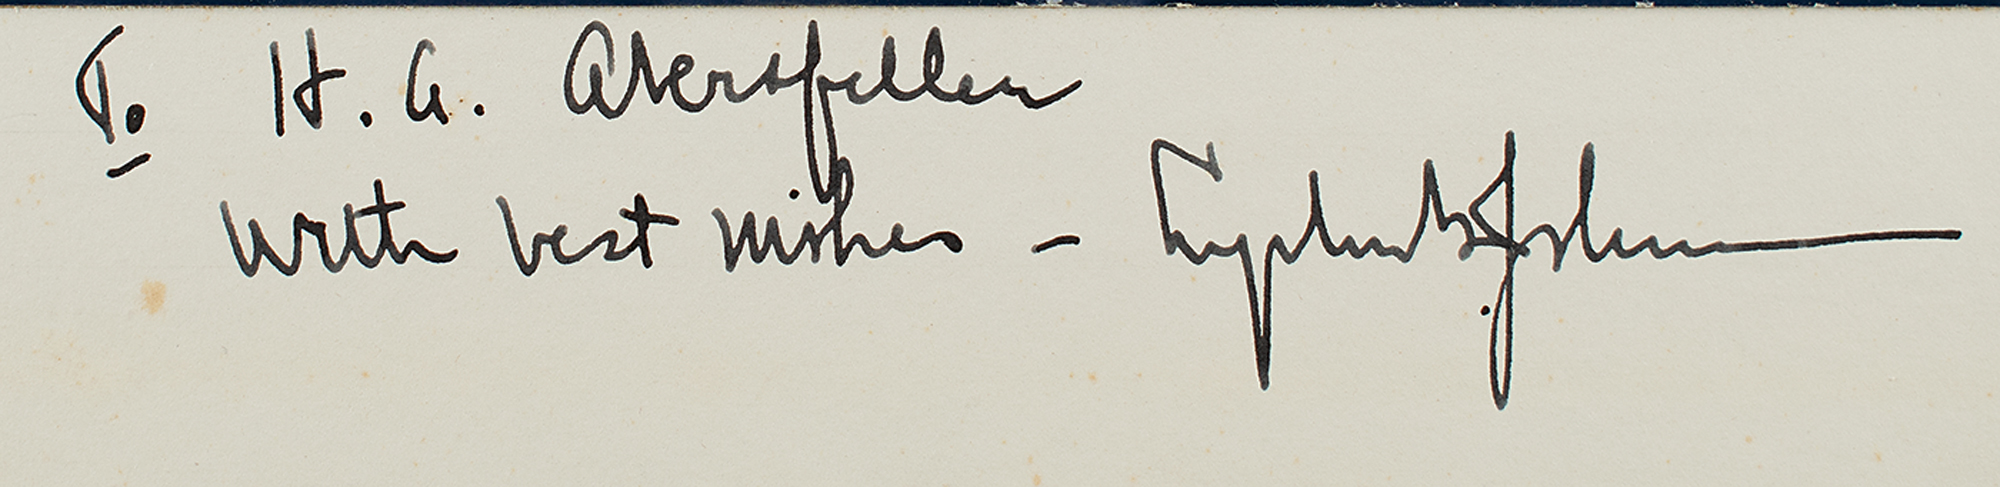 To H. A. Aberspeller
With best wishes – Lyndon B. Johnson